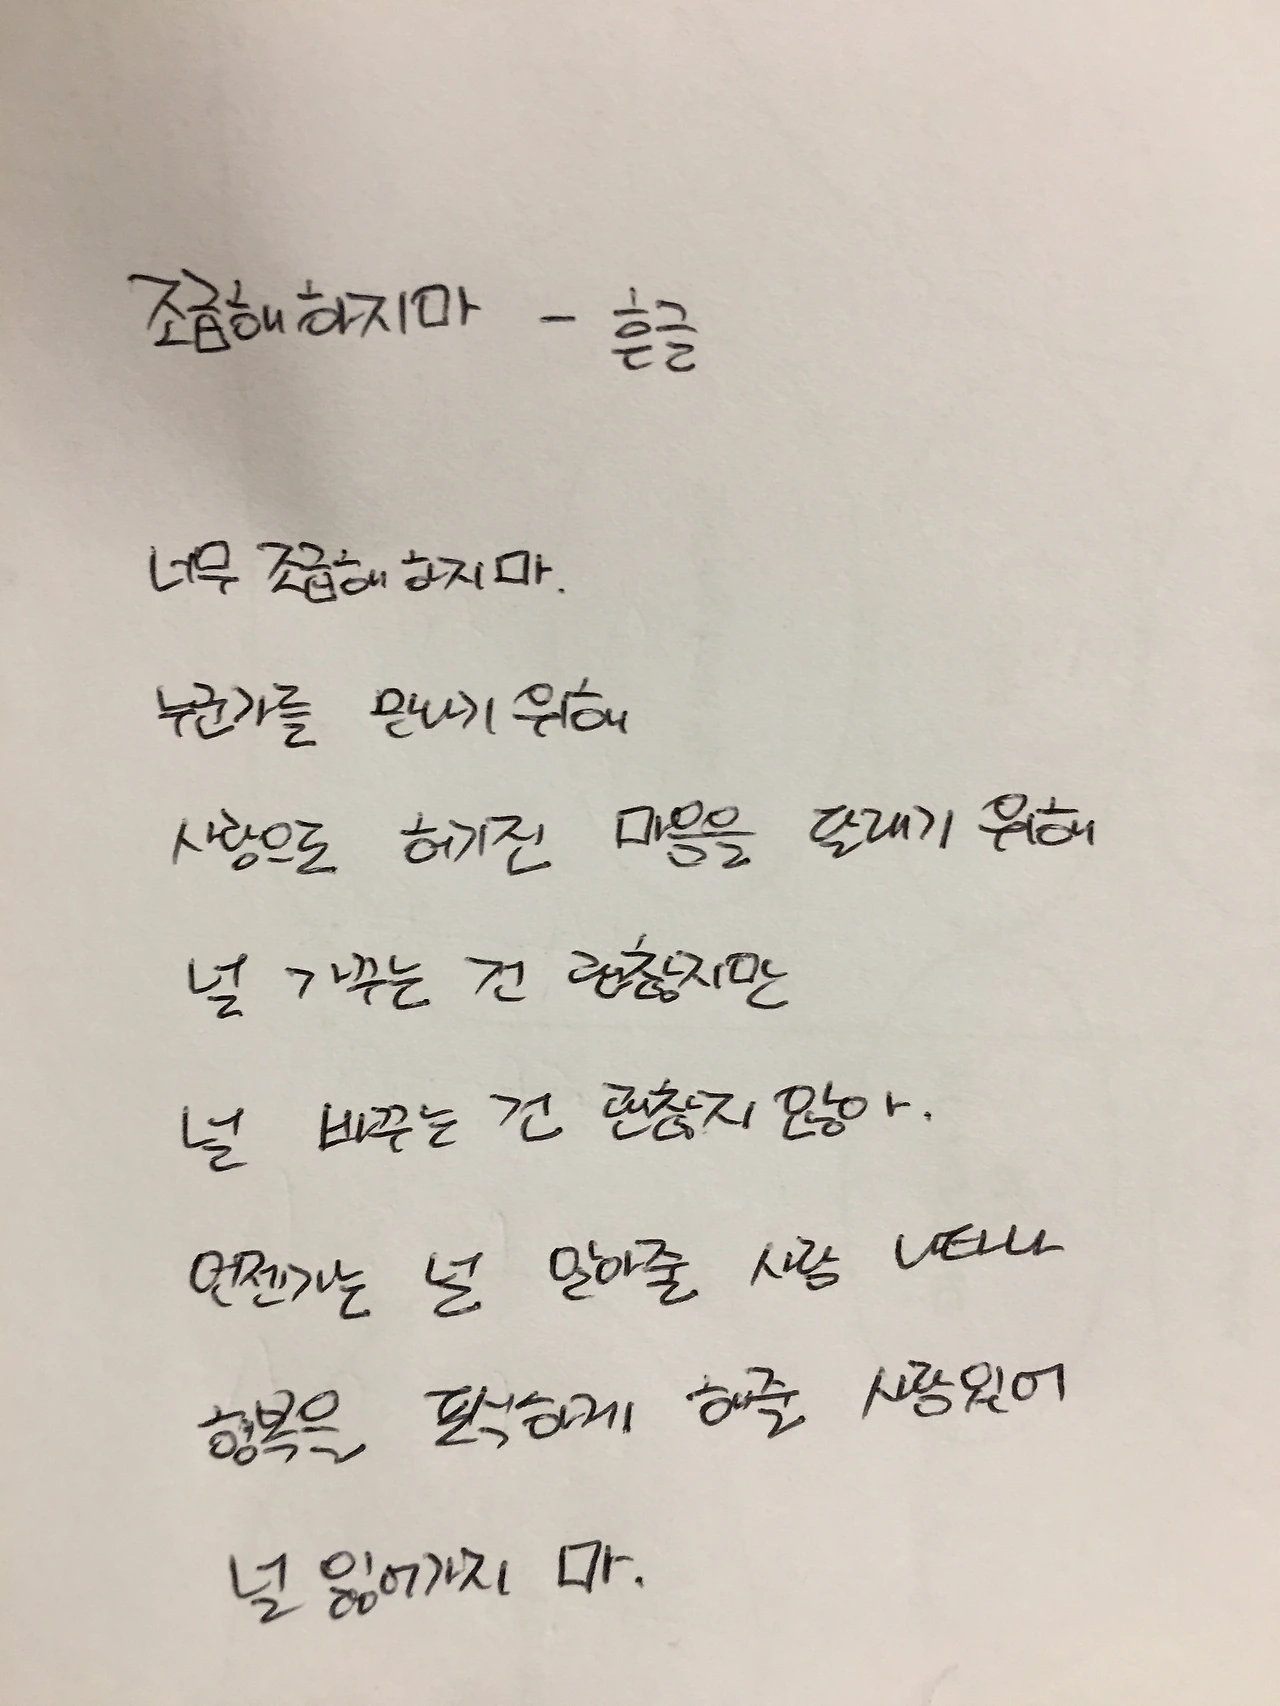 조급해하지마 - 흔글
너무 조급해 하지 마.
누군가를 만나기 위해
사랑으로 허기진 마음을 달래기 위해
널 가꾸는 건 괜찮지만
널 바꾸는 건 괜찮지 않아.
언젠가는 널 알아줄 사람 나타나
행복을 폭식하게 해줄 사람있어
널 잃어가지 마.